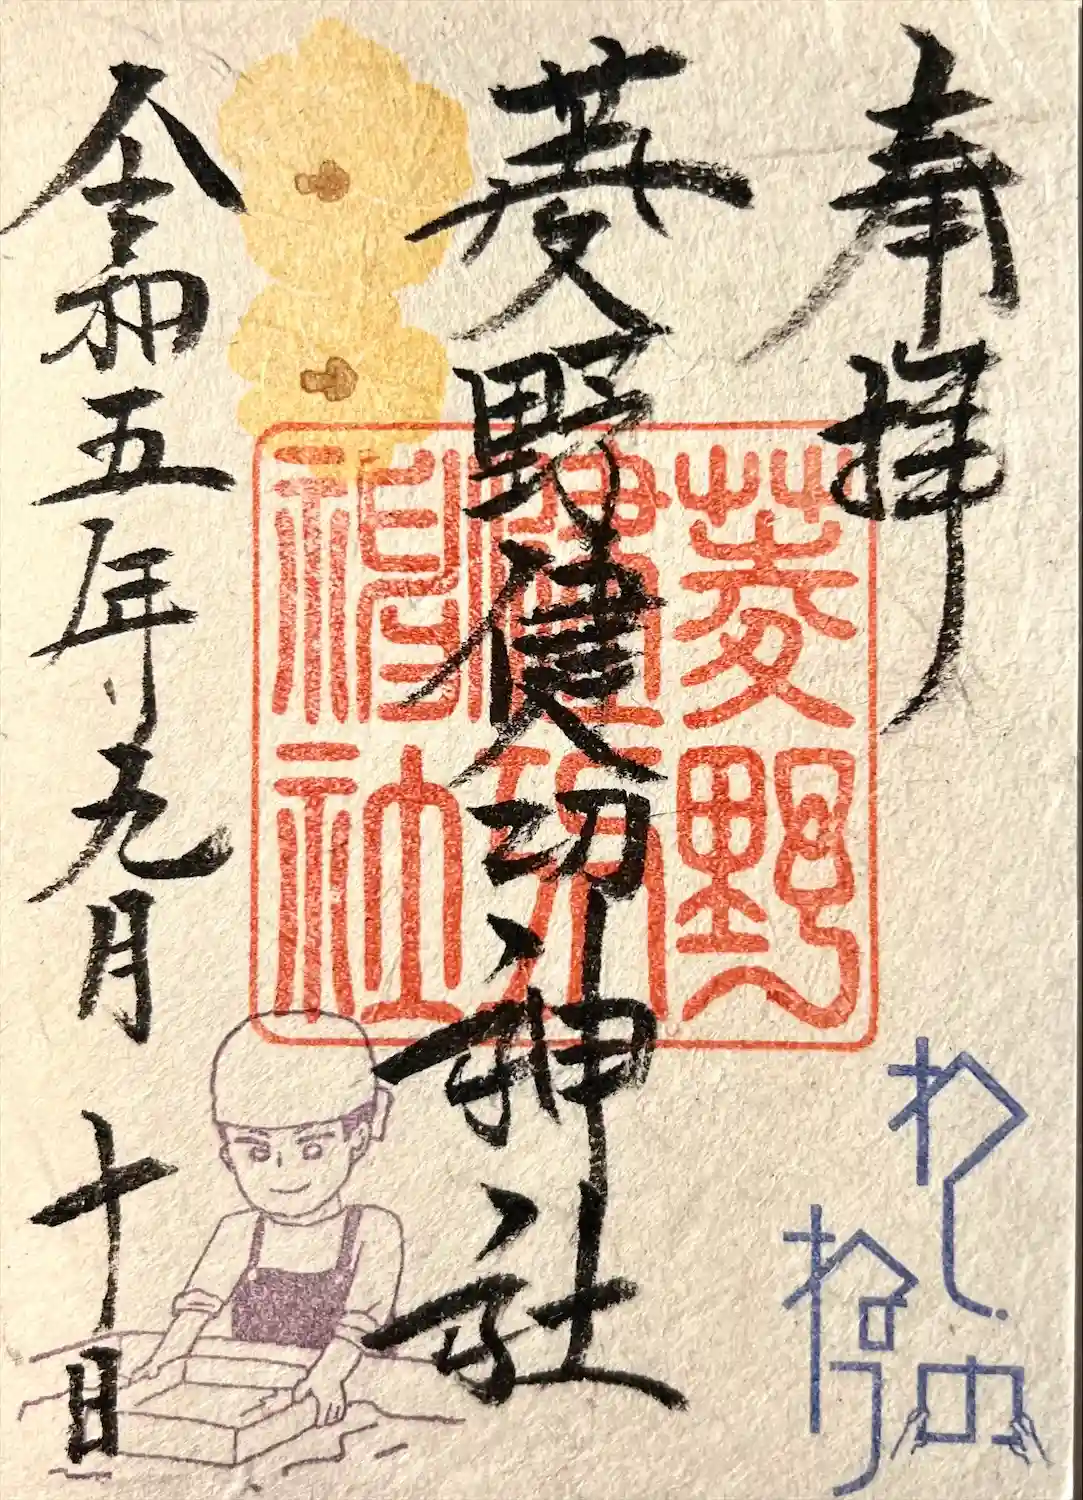 奉拝
菱野健功神社
令和五年九月十日
菱野
健功
神社
わし
ねり